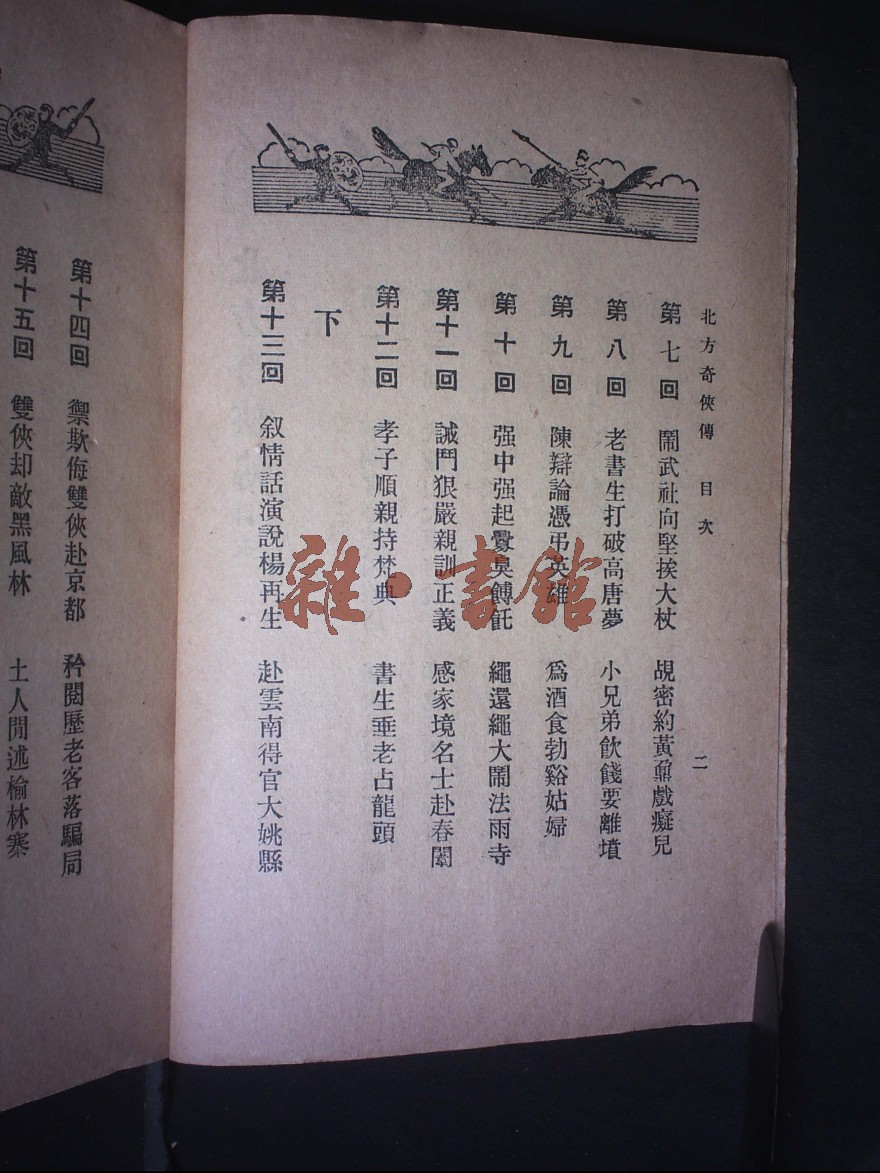 北方奇俠傳 目次 二
第七回 鬧武社向堅挨大杖 覘密約黃鼐戲癡兒
第八回 老書生打破高唐夢 小兄弟飲餞要離墳
第九回 陳辯論憑弔英雄 爲酒食勃谿姑婦
第十回 强中强起釁臭餺飥 繩還繩大鬧法雨寺
第十一回 誡鬥狠嚴親訓正義 感家境名士赴春闈
第十二回 孝子順親持梵典 書生垂老占龍頭
下
第十三回 叙情話演說楊再生 赴雲南得官大姚縣
第十四回 禦欺侮雙俠赴京都 矜閱歷老客落騙局
第十五回 雙俠却敵黑風林 土人閒述榆林寨
雜·書館